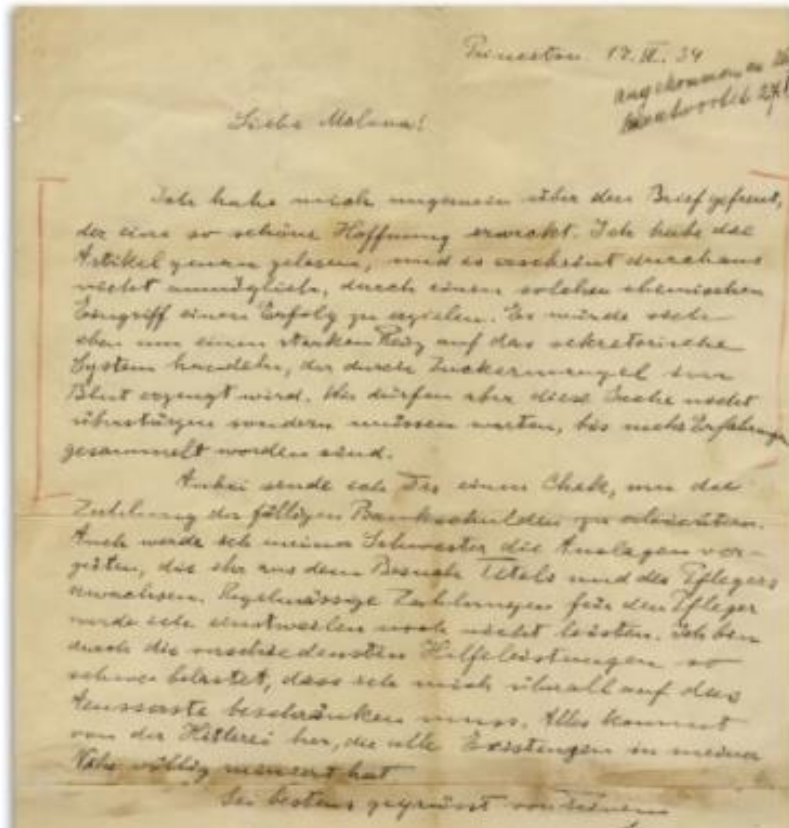 Princeton. 17. III. 34
angekommen
beantwortet 27
Liebe Mileva!
Ich habe mich ungemein über den Brief gefreut,
der eine so schöne Hoffnung erweckt. Ich habe die
Artikel genau gelesen, und es erscheint durchaus
nicht unmöglich, durch einen solchen chemischen
Eingriff einen Erfolg zu erzielen. Es würde sich
eben um einen starken Reiz auf das sekretorische
System handeln, der durch Zuckermangel im
Blut erzeugt wird. Wir dürfen aber diese Sache nicht
überstürzen sondern müssen warten, bis mehr Erfahrungen
gesammelt worden sind.
Anbei sende ich Dir einen Chek, um die
Zahlung der fälligen Bankschulden zu erleichtern.
Auch werde ich meiner Schwester die Auslagen ver-
güten, die ihr aus dem Besuch Tetels und des Pflegers
erwachsen. Regelmässige Zahlungen für den Pfleger
werde ich einstweilen noch nicht leisten. Ich bin
durch die verschiedensten Hilfeleistungen so
schwer belastet, dass ich mich überall auf das
Aeusserste beschränken muss. Alles kommt
von der Hitlerei her, die alle Existenzen in meiner
Nähe völlig ruiniert hat
Sei bestens gegrüsst von Deinem